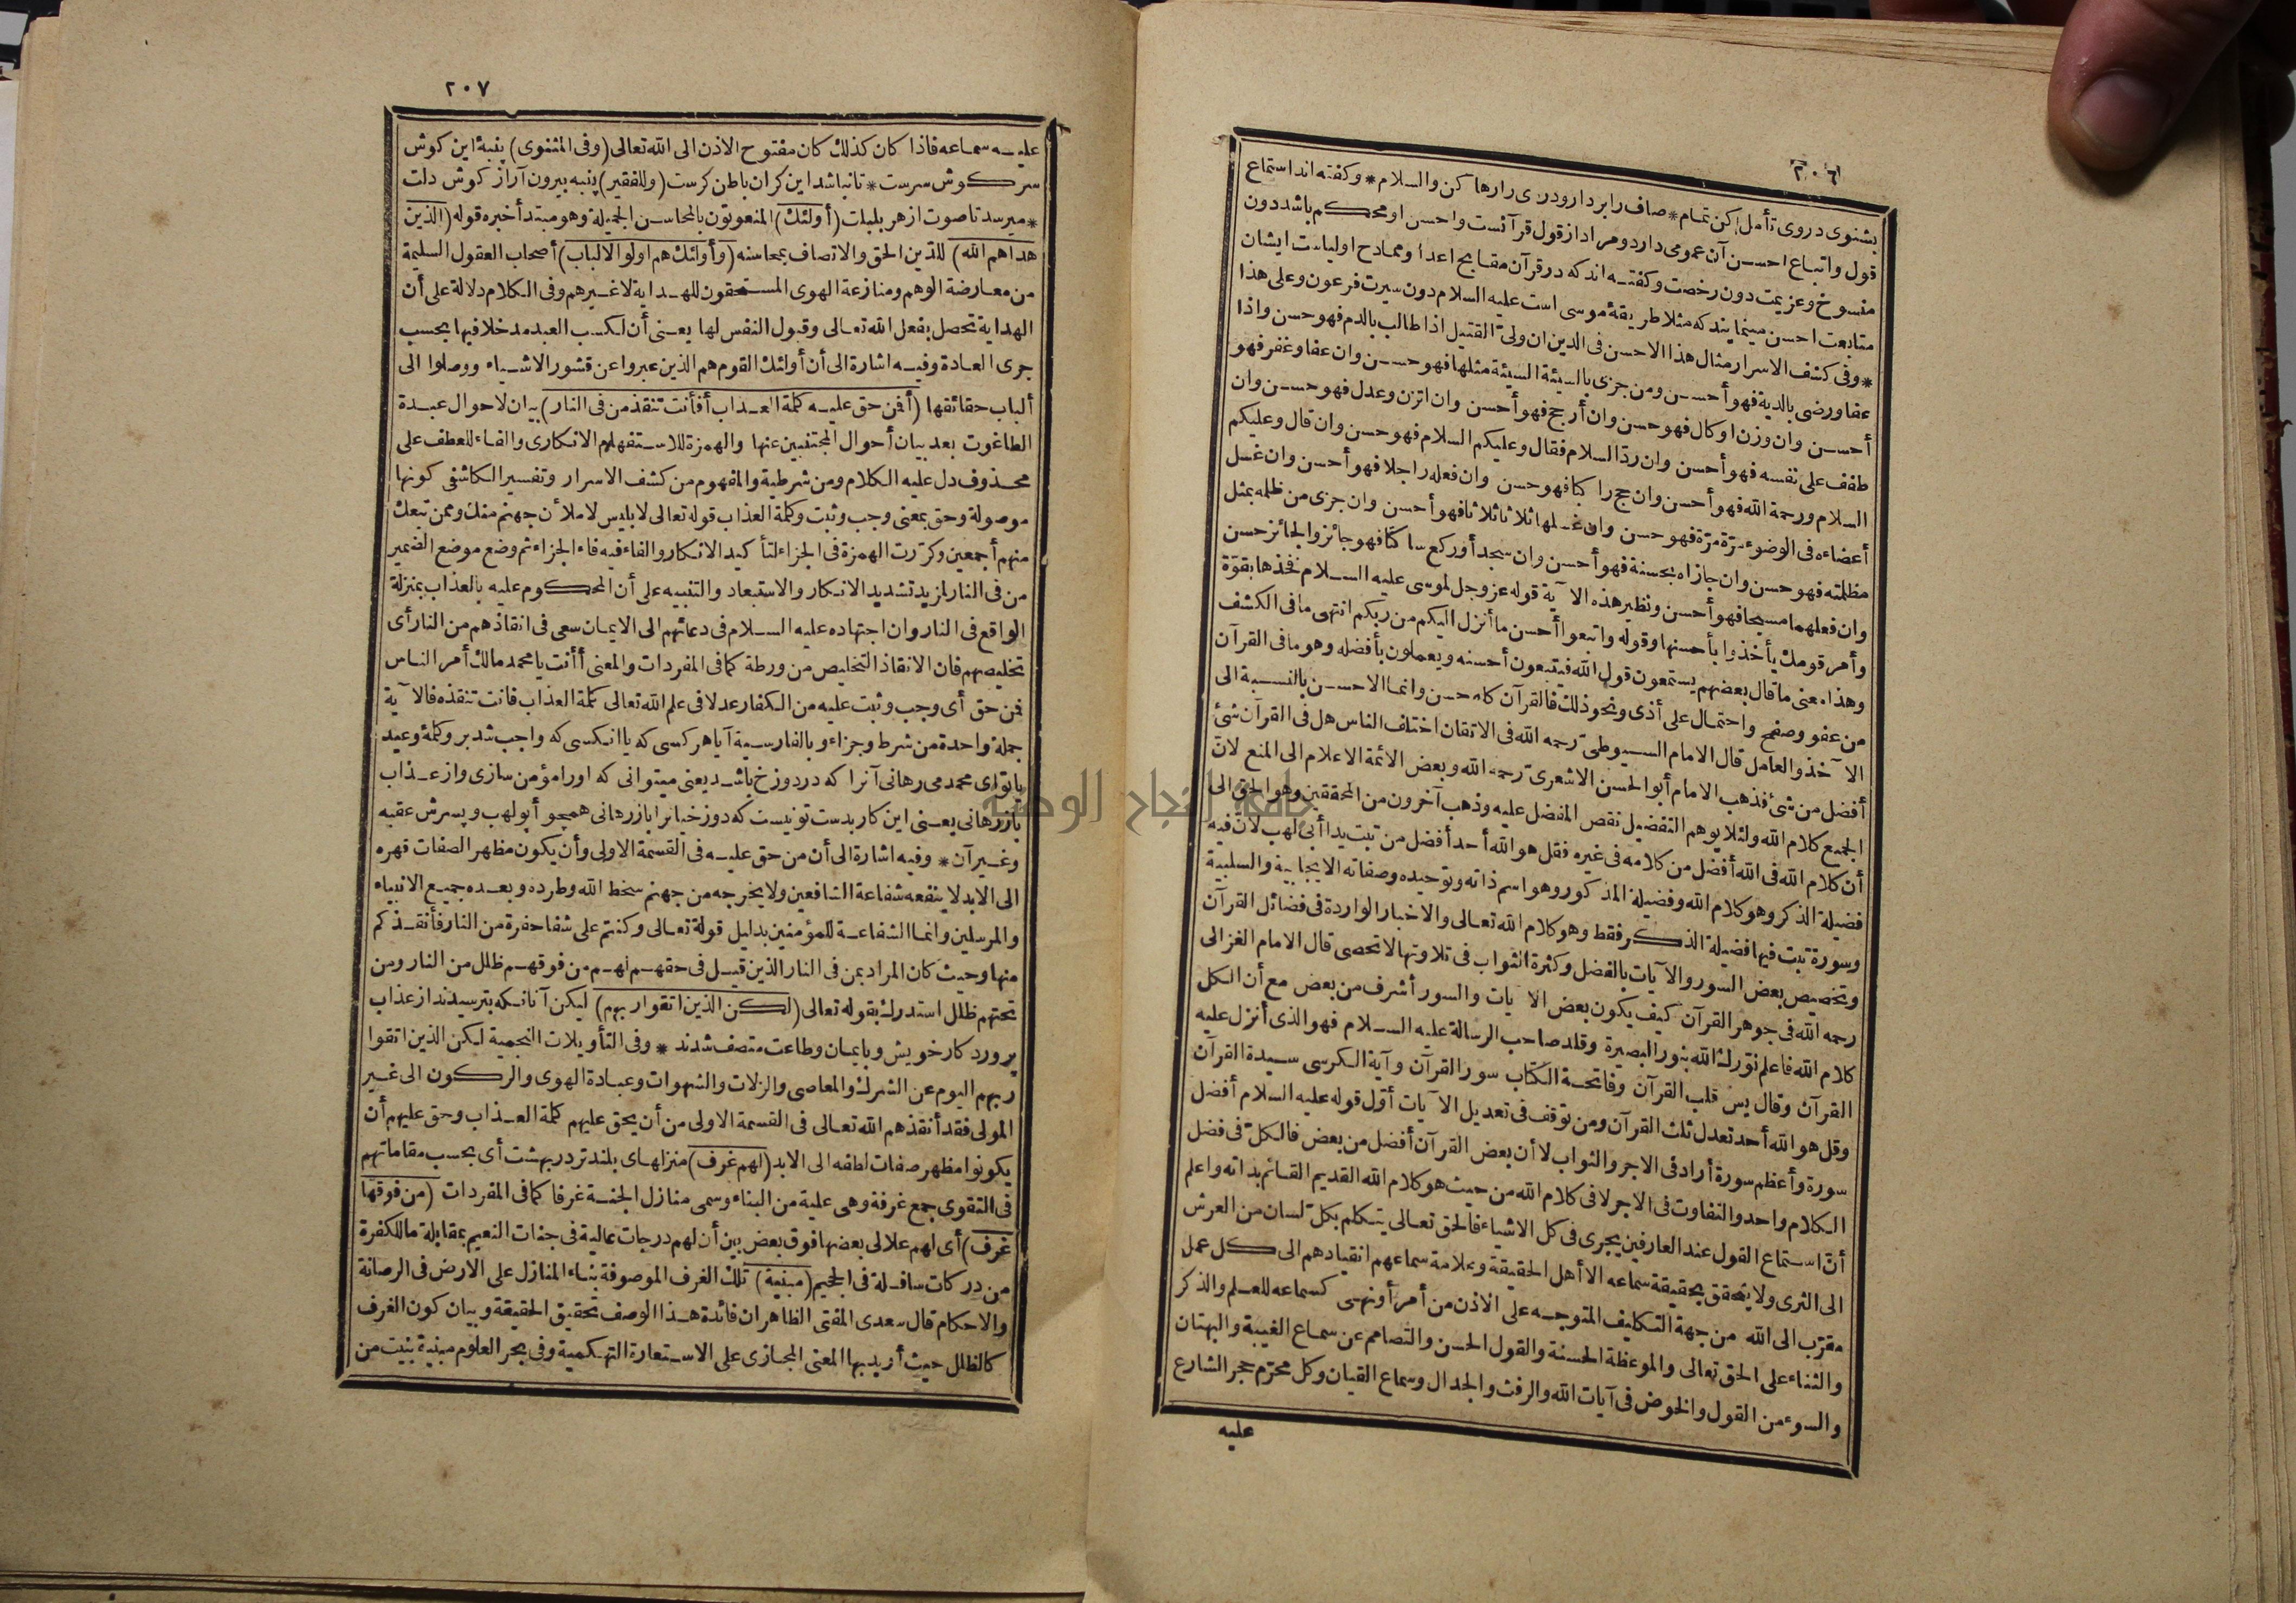 ٢٠٦
بشنوی در وی تأمل کن تمام * صاف را بردار ودردی را رها کن والسلام * وکفته اند استماع
قول واتباع احسن آن عمومی دارد ومراد از قول قرآنست واحسن او محکم باشد دون
منسوخ وعزیمت دون رخصت وکفته اند که در قرآن مقابح اعدا وممادح اولیاست ایشان
متابعت احسن مینمایند که مثلا طریقهٔ موسی است علیه السلام دون سیرت فرعون وعلی هذا
* وفی کشف الاسرار مثال هذا الاحسن فی الدین ان ولیّ القتیل اذا طالب بالدم فهو حسن واذا
عفا ورضی بالدیة فهو أحسن ومن جزی بالسیئة السیئة مثلها فهو حسن وان عفا وغفر فهو
أحسن وان وزن او کال فهو حسن وان أرجح فهو أحسن وان اتزن وعدل فهو حسن وان
طفف علی نفسه فهو أحسن وان ردّ السلام فقال وعلیکم السلام فهو حسن وان قال وعلیکم
السلام ورحمة الله فهو أحسن وان حج راکبا فهو حسن وان فعله راجلا فهو أحسن وان غسل
أعضاءه فی الوضوء مرّة مرّة فهو حسن وان غسلها ثلاثا ثلاثا فهو أحسن وان جزی من ظلمه بمثل
مظلمته فهو حسن وان جازاه بحسنة فهو أحسن وان سجد أو رکع ساکتا فهو جائز والجائز حسن
وان فعلهما مسبحا فهو أحسن ونظیر هذه الآیة قوله عز وجل لموسی علیه السلام فخذها بقوّة
وأمر قومك یأخذوا بأحسنها وقوله واتبعوا أحسن ما أنزل الیکم من ربکم انتهی ما فی الکشف
وهذا معنی ما قال بعضهم یستمعون قول الله فیتبعون أحسنه ویعملون بأفضله وهو ما فی القرآن
من عفو وصفح واحتمال علی أذی ونحو ذلك فالقرآن کله حسن وانما الاحسن بالنسبة الی
الآخذ والعامل قال الامام السیوطیّ رحمه الله فی الاتقان اختلف الناس هل فی القرآن شئ
أفضل من شئ فذهب الامام أبو الحسن الاشعریّ رحمه الله وبعض الائمة الاعلام الی المنع لانّ
الجمیع کلام الله ولئلا یوهم التفضیل نقص المفضل علیه وذهب آخرون من المحققین وهو الحق الی
أن کلام الله فی الله أفضل من کلامه فی غیره فقل هو الله أحد أفضل من تبت یدا أبی لهب لانّ فیه
فضیلة الذکر وهو کلام الله وفضیلة المذکور وهو اسم ذاته وتوحیده وصفاته الایجابیة والسلبیة
وسورة تبت فیها فضیلة الذکر فقط وهو کلام الله تعالی والاخبار الواردة فی فضائل القرآن
وتخصیص بعض السور والآیات بالفضل وکثرة الثواب فی تلاوتها لا تحصی قال الامام الغزالی
رحمه الله فی جوهر القرآن کیف یکون بعض الآیات والسور أشرف من بعض مع أن الکل
کلام الله فاعلم نوّرك الله بنور البصیرة وقلد صاحب الرسالة علیه السلام فهو الذی أنزل علیه
القرآن وقال یس قلب القرآن وفاتحة الکتاب سور القرآن وآیة الکرسی سیدة القرآن
وقل هو الله أحد تعدل ثلث القرآن ومن توقف فی تعدیل الآیات أوّل قوله علیه السلام أفضل
سورة وأعظم سورة أراد فی الاجر والثواب لا أن بعض القرآن أفضل من بعض فالکلّ فی فضل
الکلام واحد والتفاوت فی الاجر لا فی کلام الله من حیث هو کلام الله القدیم القائم بذاته واعلم
أنّ استماع القول عند العارفین یجری فی کل الاشیاء فالحق تعالی یتکلم بکلّ لسان من العرش
الی الثری ولا یتحقق بحقیقة سماعه الا أهل الحقیقة وعلامة سماعهم انقیادهم الی کل عمل
مقرّب الی الله من جهة التکلیف المتوجه علی الاذن من أمر أو نهی کسماعه للعلم والذکر
والثناء علی الحق تعالی والموعظة الحسنة والقول الحسن والتصامم عن سماع الغیبة والبهتان
والسوء من القول والخوض فی آیات الله والرفث والجدال وسماع القیان وکل محرّم حجر الشارع
علیه
٢٠٧
علیه سماعه فاذا کان کذلك کان مفتوح الاذن الی الله تعالی (وفی المثنوی) پنبهٔ این کوش
سر کوش سرست * تا نباشد این کران باطن کرست (وللفقیر) پنبه بیرون آر از کوش دلت
* میرسد تا صوت از هر بلبلت (أولئك) المنعوتون بالمحاسن الجمیلة وهو مبتدأ خبره قوله (الذین
هداهم الله) للدّین الحق والاتصاف بمحاسنه (وأولئك هم اولوا الالباب) أصحاب العقول السلیمة
من معارضة الوهم ومنازعة الهوی المستحقون للهدایة لا غیرهم وفی الکلام دلالة علی أن
الهدایة تحصل بفعل الله تعالی وقبول النفس لها یعنی أن لکسب العبد مدخلا فیها بحسب
جری العادة وفیه اشارة الی أن أولئك القوم هم الذین عبروا عن قشور الاشیاء ووصلوا الی
ألباب حقائقها (أفمن حق علیه کلمة العذاب أفأنت تنقذ من فی النار) بیان لاحوال عبدة
الطاغوت بعد بیان أحوال المجتنبین عنها والهمزة للاستفهام الانکاری والفاء للعطف علی
محذوف دل علیه الکلام ومن شرطیة والمفهوم من کشف الاسرار وتفسیر الکاشفی کونها
موصولة وحق بمعنی وجب وثبت وکلمة العذاب قوله تعالی لابلیس لاملأن جهنم منك وممن تبعك
منهم أجمعین وکرّرت الهمزة فی الجزاء لتأکید الانکار والفاء فیه فاء الجزاء ثم وضع موضع الضمیر
من فی النار لمزید تشدید الانکار والاستبعاد والتنبیه علی أن المحکوم علیه بالعذاب بمنزلة
الواقع فی النار وان اجتهاده علیه السلام فی دعائهم الی الایمان سعی فی انقاذهم من النار أی
تخلیصهم فان الانقاذ التخلیص من ورطة کما فی المفردات والمعنی أأنت یا محمد مالك أمر الناس
فمن حق أی وجب وثبت علیه من الکفار عدلا فی علم الله تعالی کلمة العذاب فانت تنقذه فالآیة
جملة واحدة من شرط وجزاء وبالفارسیة آیا هر کسی که یا انکسی که واجب شد برو کلمهٔ وعید
یا تو ای محمد می رهانی آنرا که در دوزخ باشد یعنی میتوانی که اورا مؤمن سازی واز عذاب
بازرهانی یعنی این کار بدست تو نیست که دوزخیانرا بازرهانی همچو أبو لهب وپسرش عقبه
وغیر آن * وفیه اشارة الی أن من حق علیه فی القسمة الاولی وأن یکون مظهر الصفات قهره
الی الابد لا ینفعه شفاعة الشافعین ولا یخرجه من جهنم سخط الله وطرده وبعده جمیع الانبیاء
والمرسلین وانما الشفاعة للمؤمنین بدلیل قوله تعالی وکنتم علی شفا حفرة من النار فأنقذکم
منها وحیث کان المراد بمن فی النار الذین قیل فی حقهم لهم من فوقهم ظلل من النار ومن
تحتهم ظلل استدرك بقوله تعالی (لکن الذین اتقوا ربهم) لیکن آنانکه بترسیدند از عذاب
پرورد کار خویش وبایمان وطاعت متصف شدند * وفی التأویلات النجمیة لکن الذین اتقوا
ربهم الیوم عن الشرك والمعاصی والزلات والشهوات وعبادة الهوی والرکون الی غیر
المولی فقد أنقذهم الله تعالی فی القسمة الاولی من أن یحق علیهم کلمة العذاب وحق علیهم أن
یکونوا مظهر صفات لطفه الی الابد (لهم غرف) منزلهای بلند تر در بهشت أی بحسب مقاماتهم
فی التقوی جمع غرفة وهی علیة من البناء وسمی منازل الجنة غرفا کما فی المفردات (من فوقها
غرف) أی لهم علالی بعضها فوق بعض بین أن لهم درجات عالیة فی جنات النعیم بمقابلة ما للکفرة
من درکات سافلة فی الجحیم (مبنیة) تلك الغرف الموصوفة بناء المنازل علی الارض فی الرصانة
والاحکام قال سعدی المفتی الظاهر ان فائدة هذا الوصف تحقیق الحقیقة وبیان کون الغرف
کالظلل حیث أرید بها المعنی المجازی علی الاستعارة التهکمیة وفی بحر العلوم مبنیة بنیت من
جامعة النجاح الوطنية